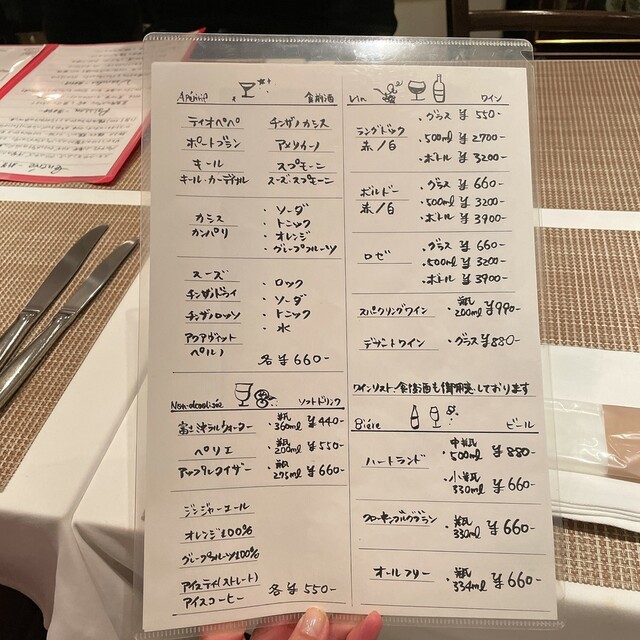 Apéritif 食前酒
ティオペペ チンザノカシス
ポートブラン アメリカーノ
キール スプモーニ
キール・カーディナル スーズ・スプモーニ
カシス
カンパリ
・ソーダ
・トニック
・オレンジ
・グレープフルーツ
スーズ
チンザノドライ
チンザノロッソ
アクアヴィット
ペルノ
・ロック
・ソーダ
・トニック
・水
各¥660-
Non-alcoolisée ソフトドリンク
富士ミネラルウォーター ・瓶 360ml ¥440-
ペリエ ・瓶 200ml ¥550-
アップルタイザー ・瓶 295ml ¥660-
ジンジャーエール
オレンジ100%
グレープフルーツ100%
アイスティ(ストレート)
アイスコーヒー 各¥550-
Vin ワイン
ラングドック
赤/白
・グラス ¥550-
・500ml ¥2700-
・ボトル ¥3200-
ボルドー
赤/白
・グラス ¥660-
・500ml ¥3200-
・ボトル ¥3900-
ロゼ
・グラス ¥660-
・500ml ¥3200-
・ボトル ¥3900-
スパークリングワイン ・瓶 200ml ¥990-
デザートワイン ・グラス ¥880-
ワインリスト、食後酒も御用意しております
Bière ビール
ハートランド
・中瓶 500ml ¥880-
・小瓶 330ml ¥660-
クローネンブルグブラン ・瓶 330ml ¥660-
オールフリー ・瓶 334ml ¥660-